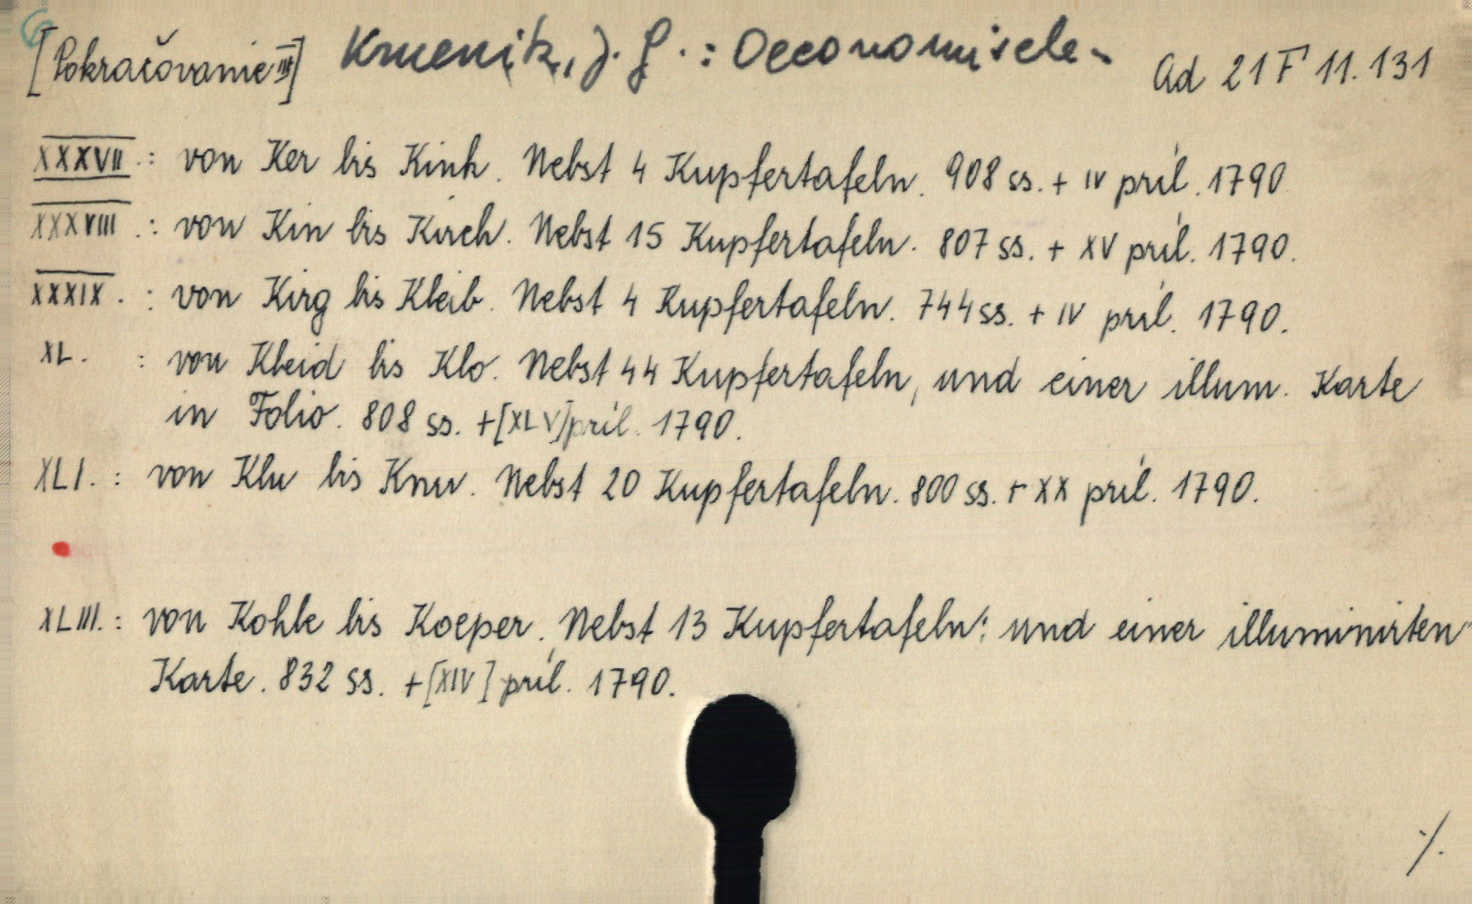 6
[Pokračovanie III] Kruenitz, J. G.: Oeconomische- Ad 21 F 11.131
XXXVII.: von Ker bis Kink. Nebst 4 Kupfertafeln. 908 ss. + IV príl. 1790
XXXVIII.: von Kin bis Kirch. Nebst 15 Kupfertafeln. 807 ss. + XV príl. 1790.
XXXIX.: von Kirg bis Kleib. Nebst 4 Kupfertafeln. 744 ss. + IV príl. 1790.
XL. : von Kleid bis Klo. Nebst 44 Kupfertafeln, und einer illum. Karte
in Folio. 808 ss. + [XLV] príl. 1790.
XLI.: von Klu bis Knu. Nebst 20 Kupfertafeln. 800 ss. + XX príl. 1790.
XLIII.: von Kohle bis Koeper. Nebst 13 Kupfertafeln; und einer illuminirten
Karte. 832 ss. + [XIV] príl. 1790.
./.